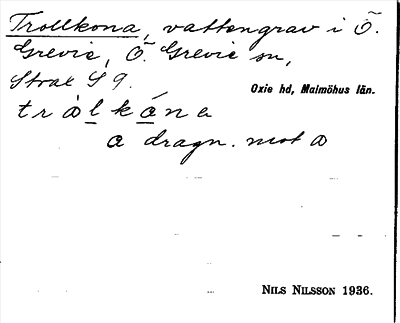 Trollkona, vattengrav i Ö.
Grevie, Ö. Grevie sn,
Strax S 9.
Oxie hd, Malmöhus län.
tràlkána
a dragn. mot
NILS NILSSON 1936.